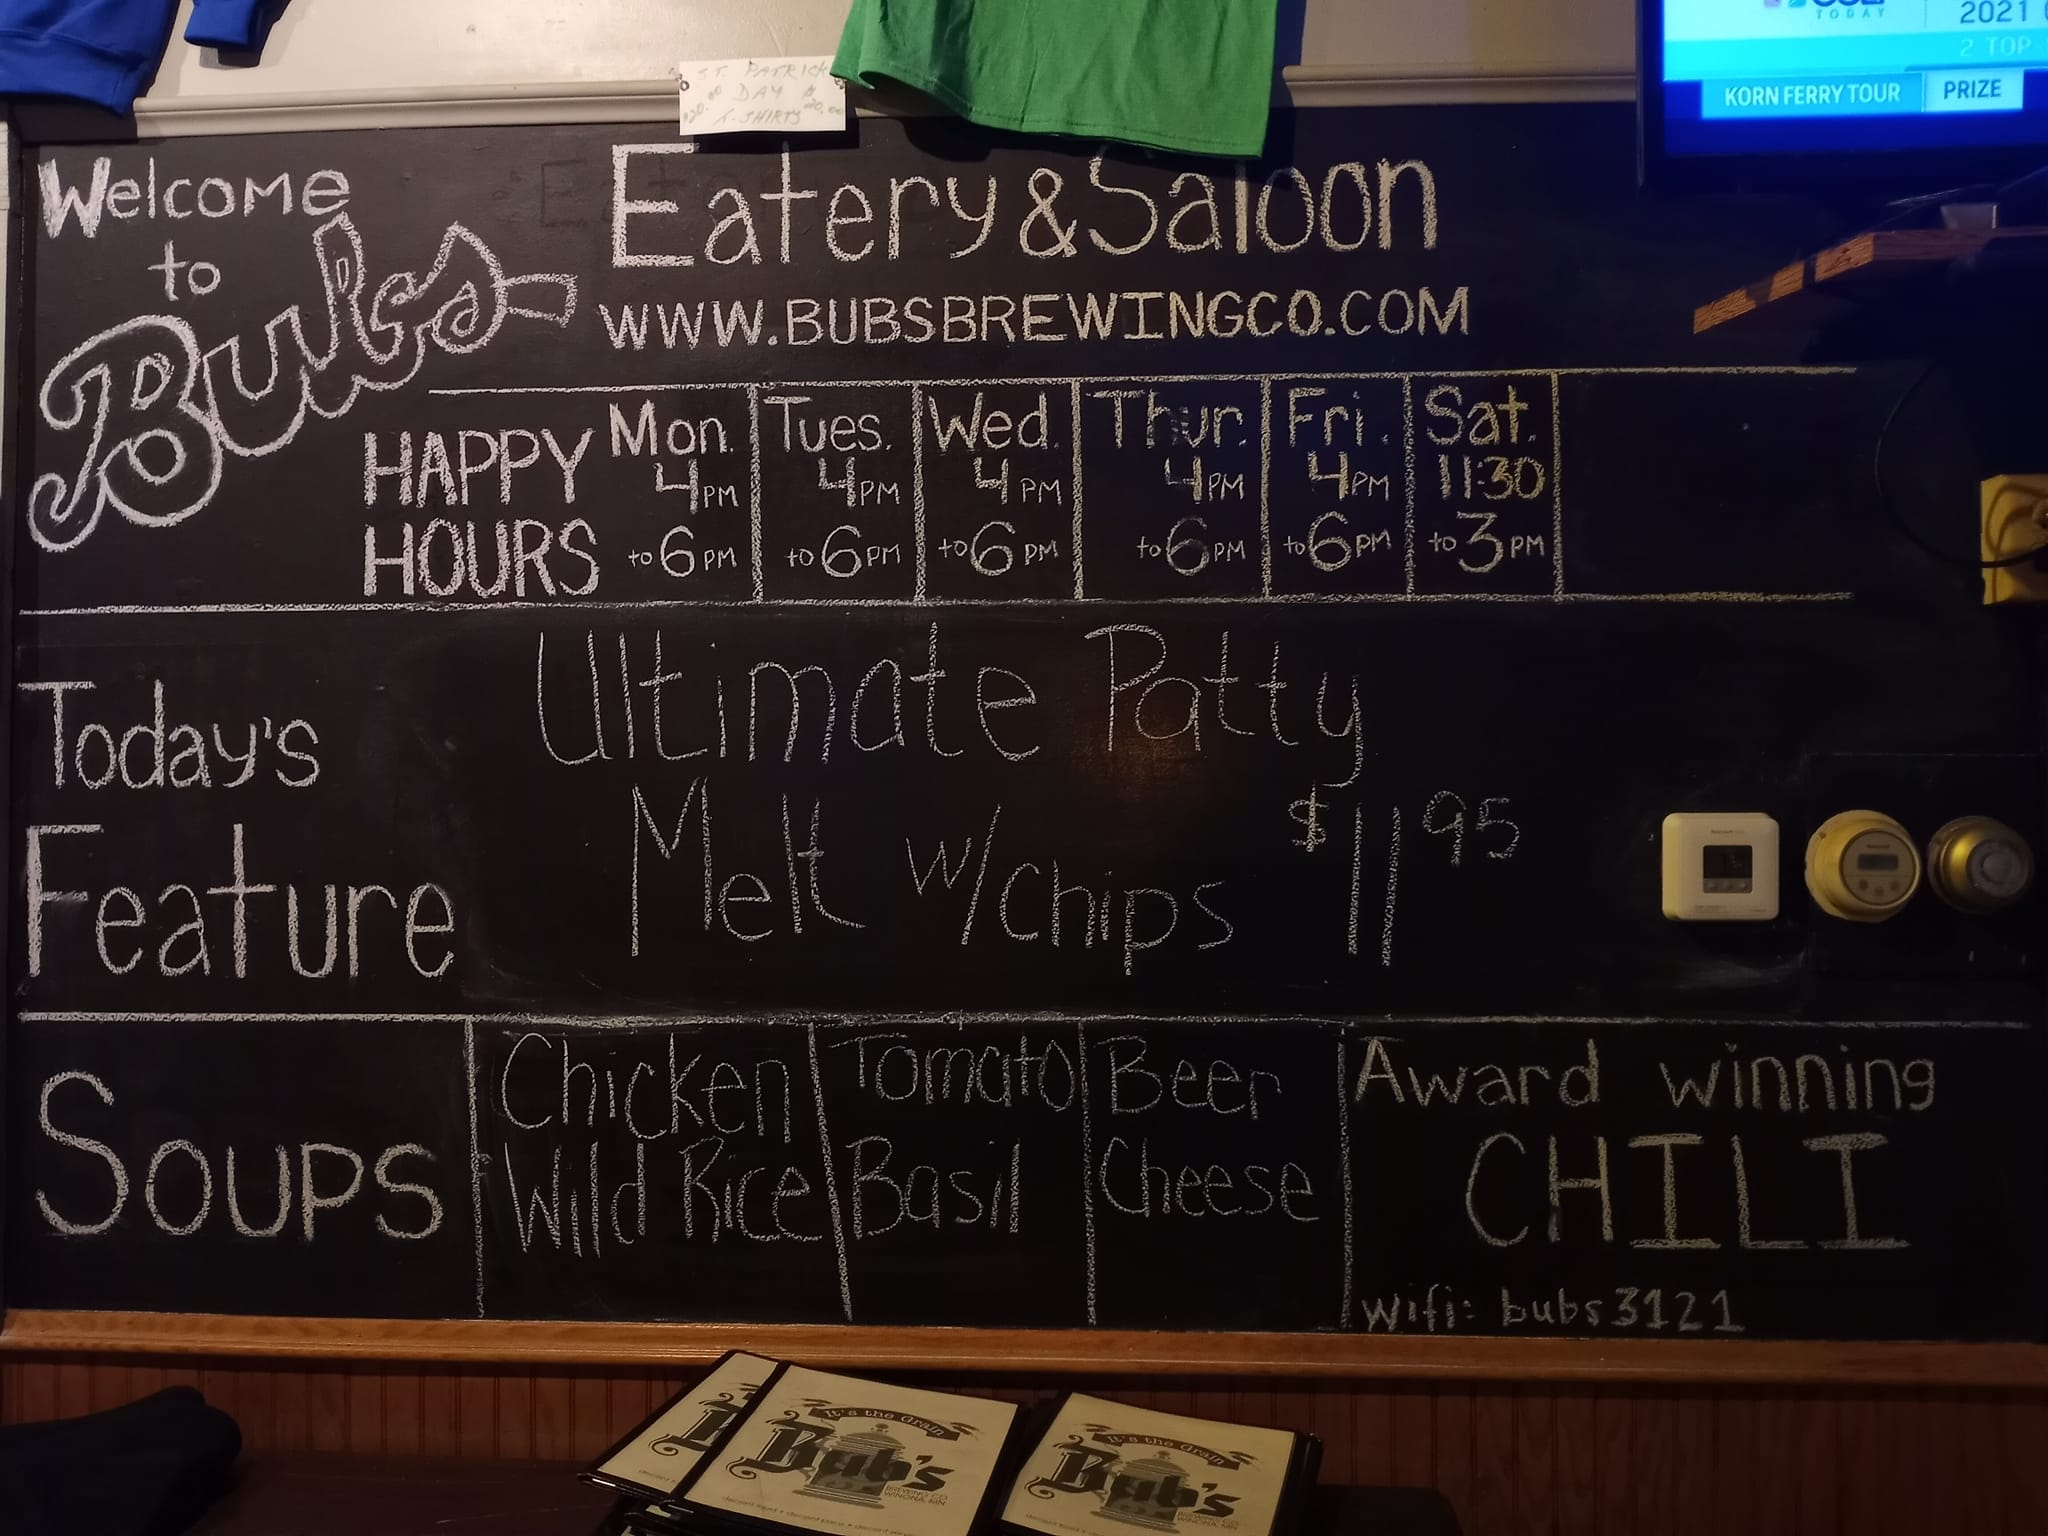 TODAY
2021
2 TOP-
KORN FERRY TOUR
PRIZE
ST. PATRICK
DAY
$20.00 $20.00
T-SHIRTS
Welcome
to
Bubs
Eatery & Saloon
WWW.BUBSBREWINGCO.COM
HAPPY
HOURS
Mon. Tues. Wed. Thur. Fri. Sat.
4PM 4PM 4PM 4PM 4PM 11:30
to 6PM to 6PM to 6PM to 6PM to 6PM to 3PM
Today's
Feature
Ultimate Patty
Melt w/chips $11 95
Soups
Chicken
Wild Rice
Tomato
Basil
Beer
Cheese
Award winning
CHILI
Wifi: bubs3121
It's the Grain
Bub's
BREWING CO.
WINONA, MN
It's the Grain
Bub's
BREWING CO.
WINONA, MN